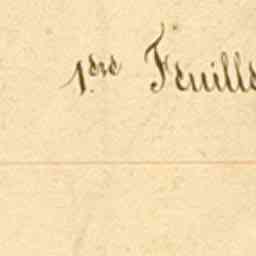 1.ère Feuille